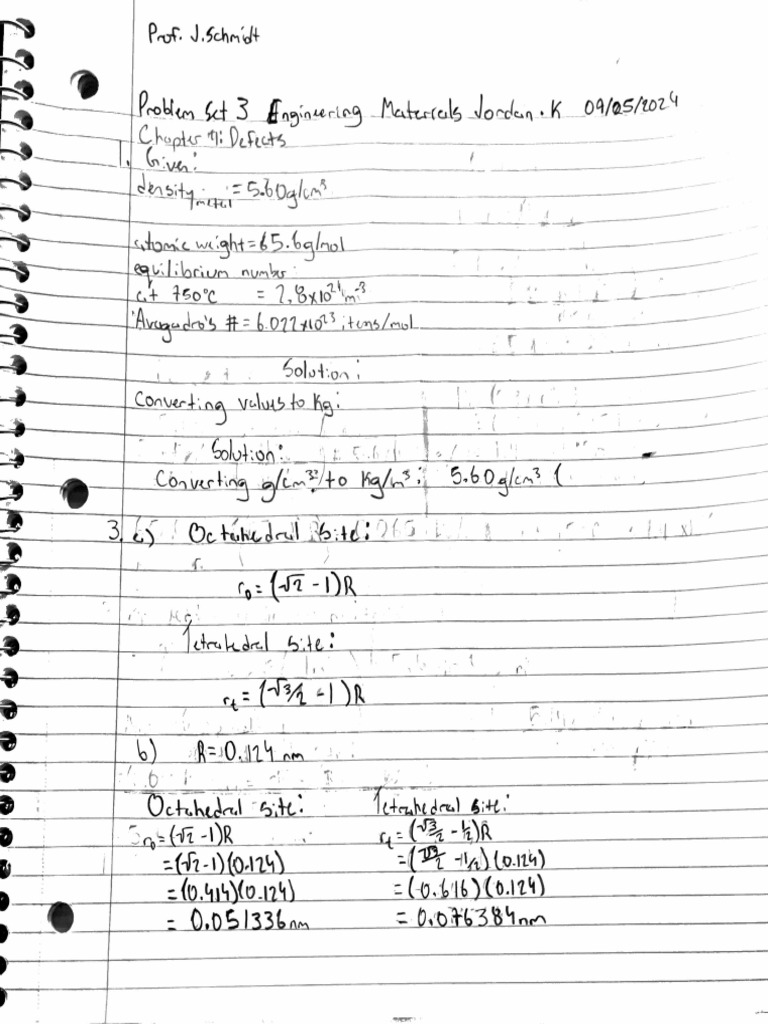 Prof. J. Schmidt
Problem Set 3 Engineering Materials Jordan. K 09/25/2024
Chapter 4: Defects
1. Given:
density metal = 5.60 g/cm³
atomic weight = 65.6 g/mol
equilibrium number
at 750°C = 2.8x10²⁴ m⁻³
Avogadro's # = 6.022x10²³ items/mol
Solution:
Converting values to Kg:
Solution:
Converting g/cm³ to Kg/m³: 5.60 g/cm³ (
3. a) Octahedral Site:
r₀ = (√2 - 1)R
Tetrahedral Site:
rₜ = (√3/2 - 1)R
b) R = 0.124 nm
Octahedral Site: Tetrahedral Site:
r₀ = (√2 - 1)R rₜ = (√3/2 - 1/2)R
= (√2 - 1)(0.124) = (√3/2 - 1/2)(0.124)
= (0.414)(0.124) = (-0.616)(0.124)
= 0.051336 nm = 0.076384 nm